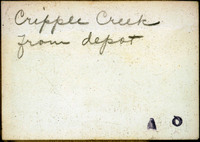 Cripple Creek
from depot
A O